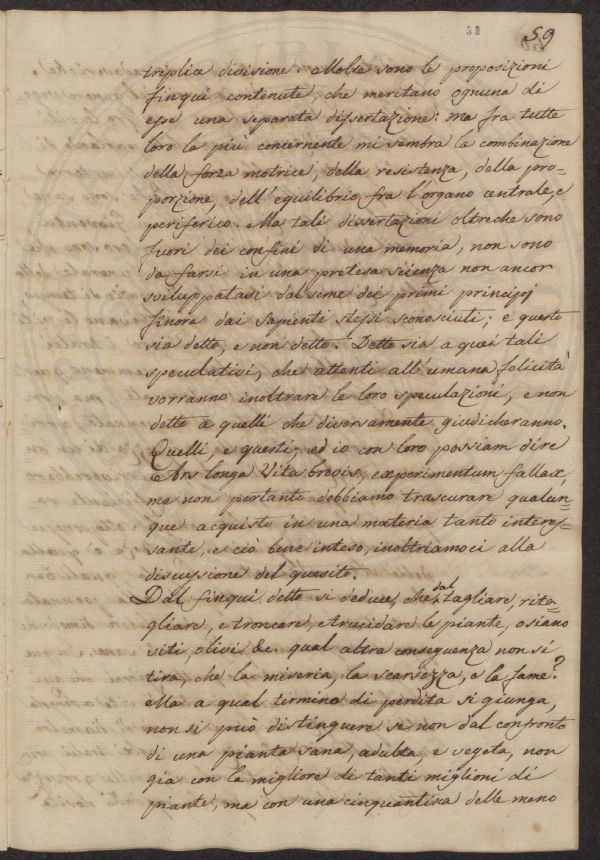 32 59
triplice divisione. Molte sono le proposizioni
finqui contenute, che meritano ognuna di
esse una separata dissertazione: ma fra tutte
loro la più concernente mi sembra la combinazione
della forza motrice, della resistenza, della pro=
porzione, dell'equilibrio fra l'organo centrale, e
periferico. Ma tali dissertazioni oltreche sono
fuori dei confini di una memoria, non sono
da farsi in una pretesa scienza non ancor
sviluppatasi dal seme dei primi principj
finora dai sapienti stessi sconosciuti; e questo
sia detto, e non detto. Detto sia a quei tali
speculativi, che attenti all'umana felicità
vorranno inoltrare le loro speculazioni, e non
detto a quelli che diversamente giudicheranno.
Quelli, e questi, ed io con loro possiam dire
Ars longa Vita brevis, experimentum fallax,
ma non pertanto dobbiamo trascurare qualun=
que acquisto in una materia tanto interes=
sante, e ciò bene inteso, inoltriamoci alla
discussione del quesito.
Dal finqui detto si deduce, che dal tagliare, rita=
gliare, e troncare, e trucidare le piante, o siano
viti, olivi &c. qual altra conseguenza non si
tira, che la miseria, la scarsezza, e la fame?
Ma a qual termine di perdita si giunga,
non si può distinguere se non dal confronto
di una pianta sana, adulta, e vegeta, non
gia con la migliore di tanti miglioni di
piante, ma con una cinquantina delle meno